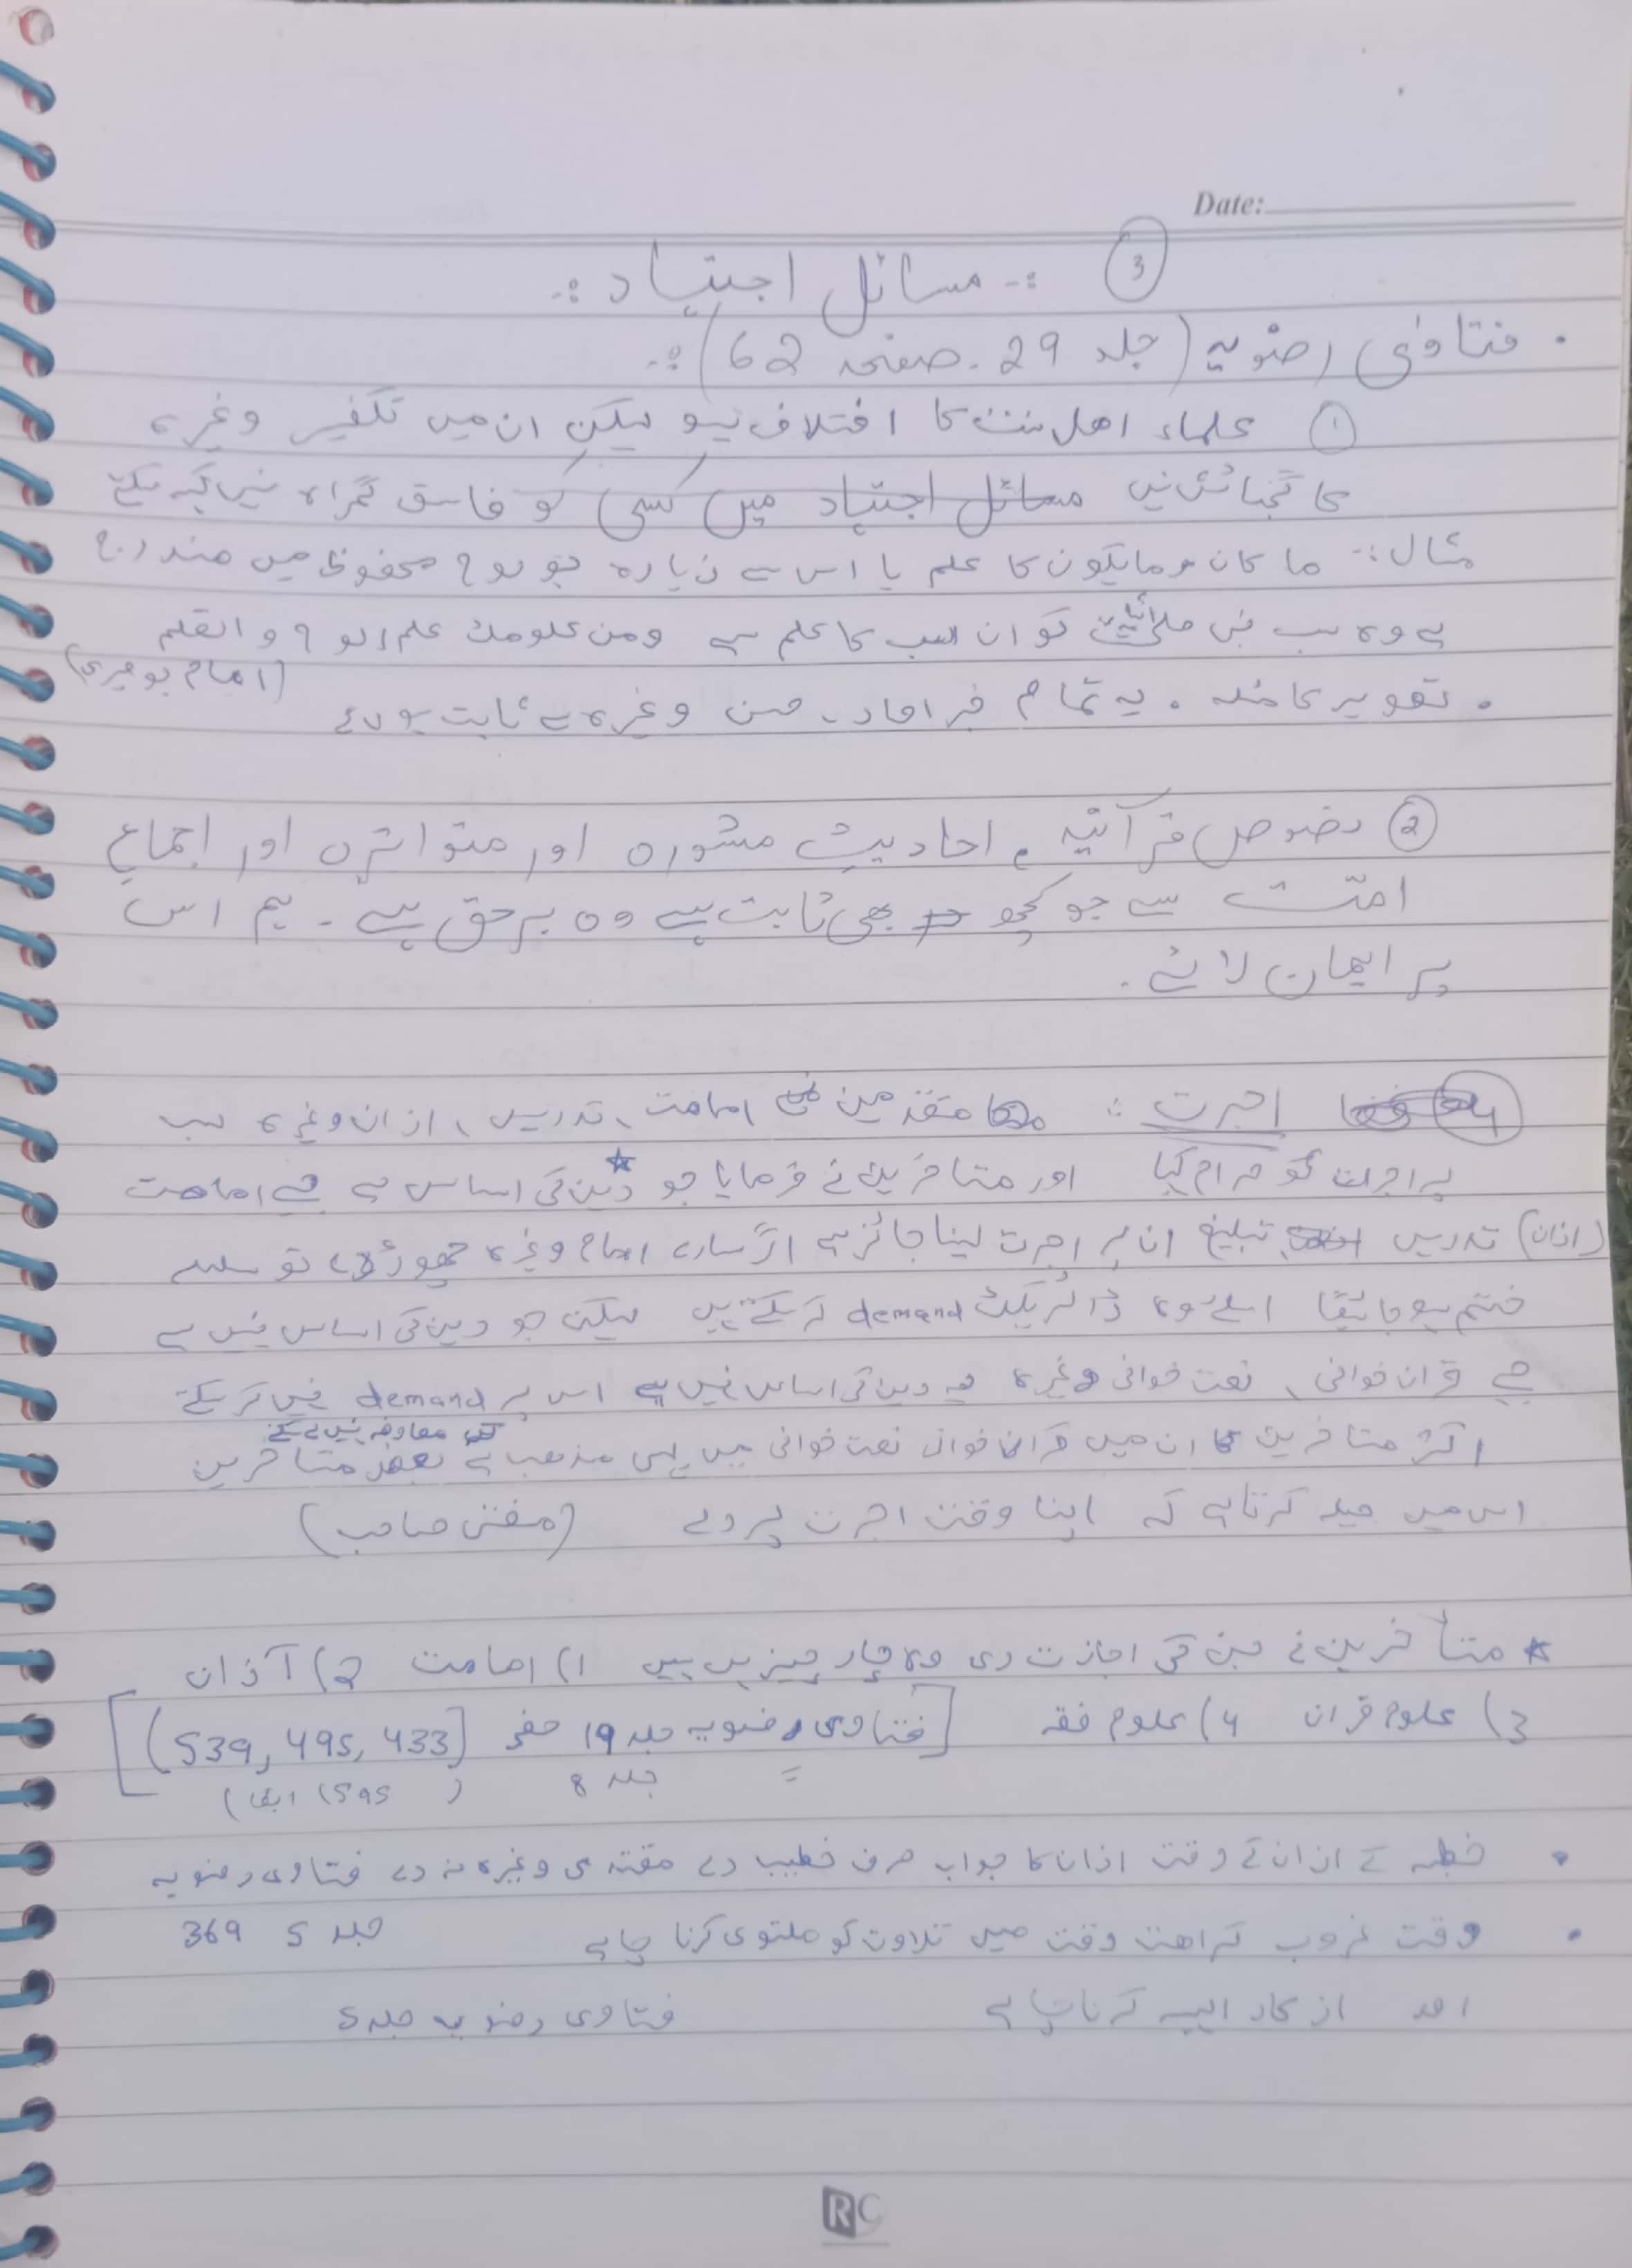 Date:
③ :۔ مسائل اجتہاد :۔
• فتاوٰی رضویہ (جلد 29۔ صفحہ 62) :۔
① علماء اھلسنت کا اختلاف ہو لیکن ان میں تکفیر وغیرہ
کا گنجائش نہیں مسائل اجتہاد میں کسی کو فاسق گمراہ نہیں کہہ سکتے
مثال :۔ ما کان وما یکون کا علم یا اس سے زیادہ جو لوح محفوظ میں مندرج
ہے وہ سب نبی صلی ﷺ کو ان سب کا علم ہے ومن علومك علم اللوح والقلم
(امام بوصیری)
• تصویر کا مسئلہ۔ یہ تمام خبر احاد، حسن وغیرہ سے ثابت
② نصوص قرآنیہ، احادیث مشہورہ اور متواترہ اور اجماع
امّت سے جو کچھ بھی ثابت ہے وہ برحق ہے۔ ہم اس
پر ایمان لائے۔
④ اجرت : متقدمین امامت، تدریس، اذان وغیرہ سب
پر اجرت کو حرام کیا اور متاخرین نے فرمایا جو *دین کی اساس ہے جیسے امامت
(اذان) تدریس تبلیغ ان پر اجرت لینا جائز ہے اگر سارے امام وغیرہ چھوڑ دے تو سلسلہ
ختم ہو جائیگا اسلئے وہ ڈائریکٹ demand کر سکتے ہیں لیکن جو دین کی اساس نہیں ہے
جیسے قران خوانی، نعت خوانی وغیرہ یہ دین کی اساس نہیں ہے اس پر demand نہیں کر سکتے
معاوضہ نہیں لے سکتے
اکثر متاخرین کا ان میں قران خوانی نعت خوانی میں یہی مذھب ہے بعض متاخرین
اس میں حیلہ کرتا ہے کہ اپنا وقت اجرت پر دے (مفتی صاحب)
* متأخرین نے جن کی اجازت دی وہ چار چیزیں ہیں 1) امامت 2) آذان
3) علوم قران 4) علوم فقہ [فتاوی رضویہ جلد 19 صفحہ (433, 495, 539)]
جلد 8 (595)
• خطبہ کے اذان کے وقت اذان کا جواب صرف خطیب دے مقتدی وغیرہ نہ دے فتاوی رضویہ
• وقت غروب کراھت وقت میں تلاوت کو ملتوی کرنا چاہے جلد 5 369
اور اذکار ایسے کرنا چاہے فتاوی رضویہ جلد 5
RC